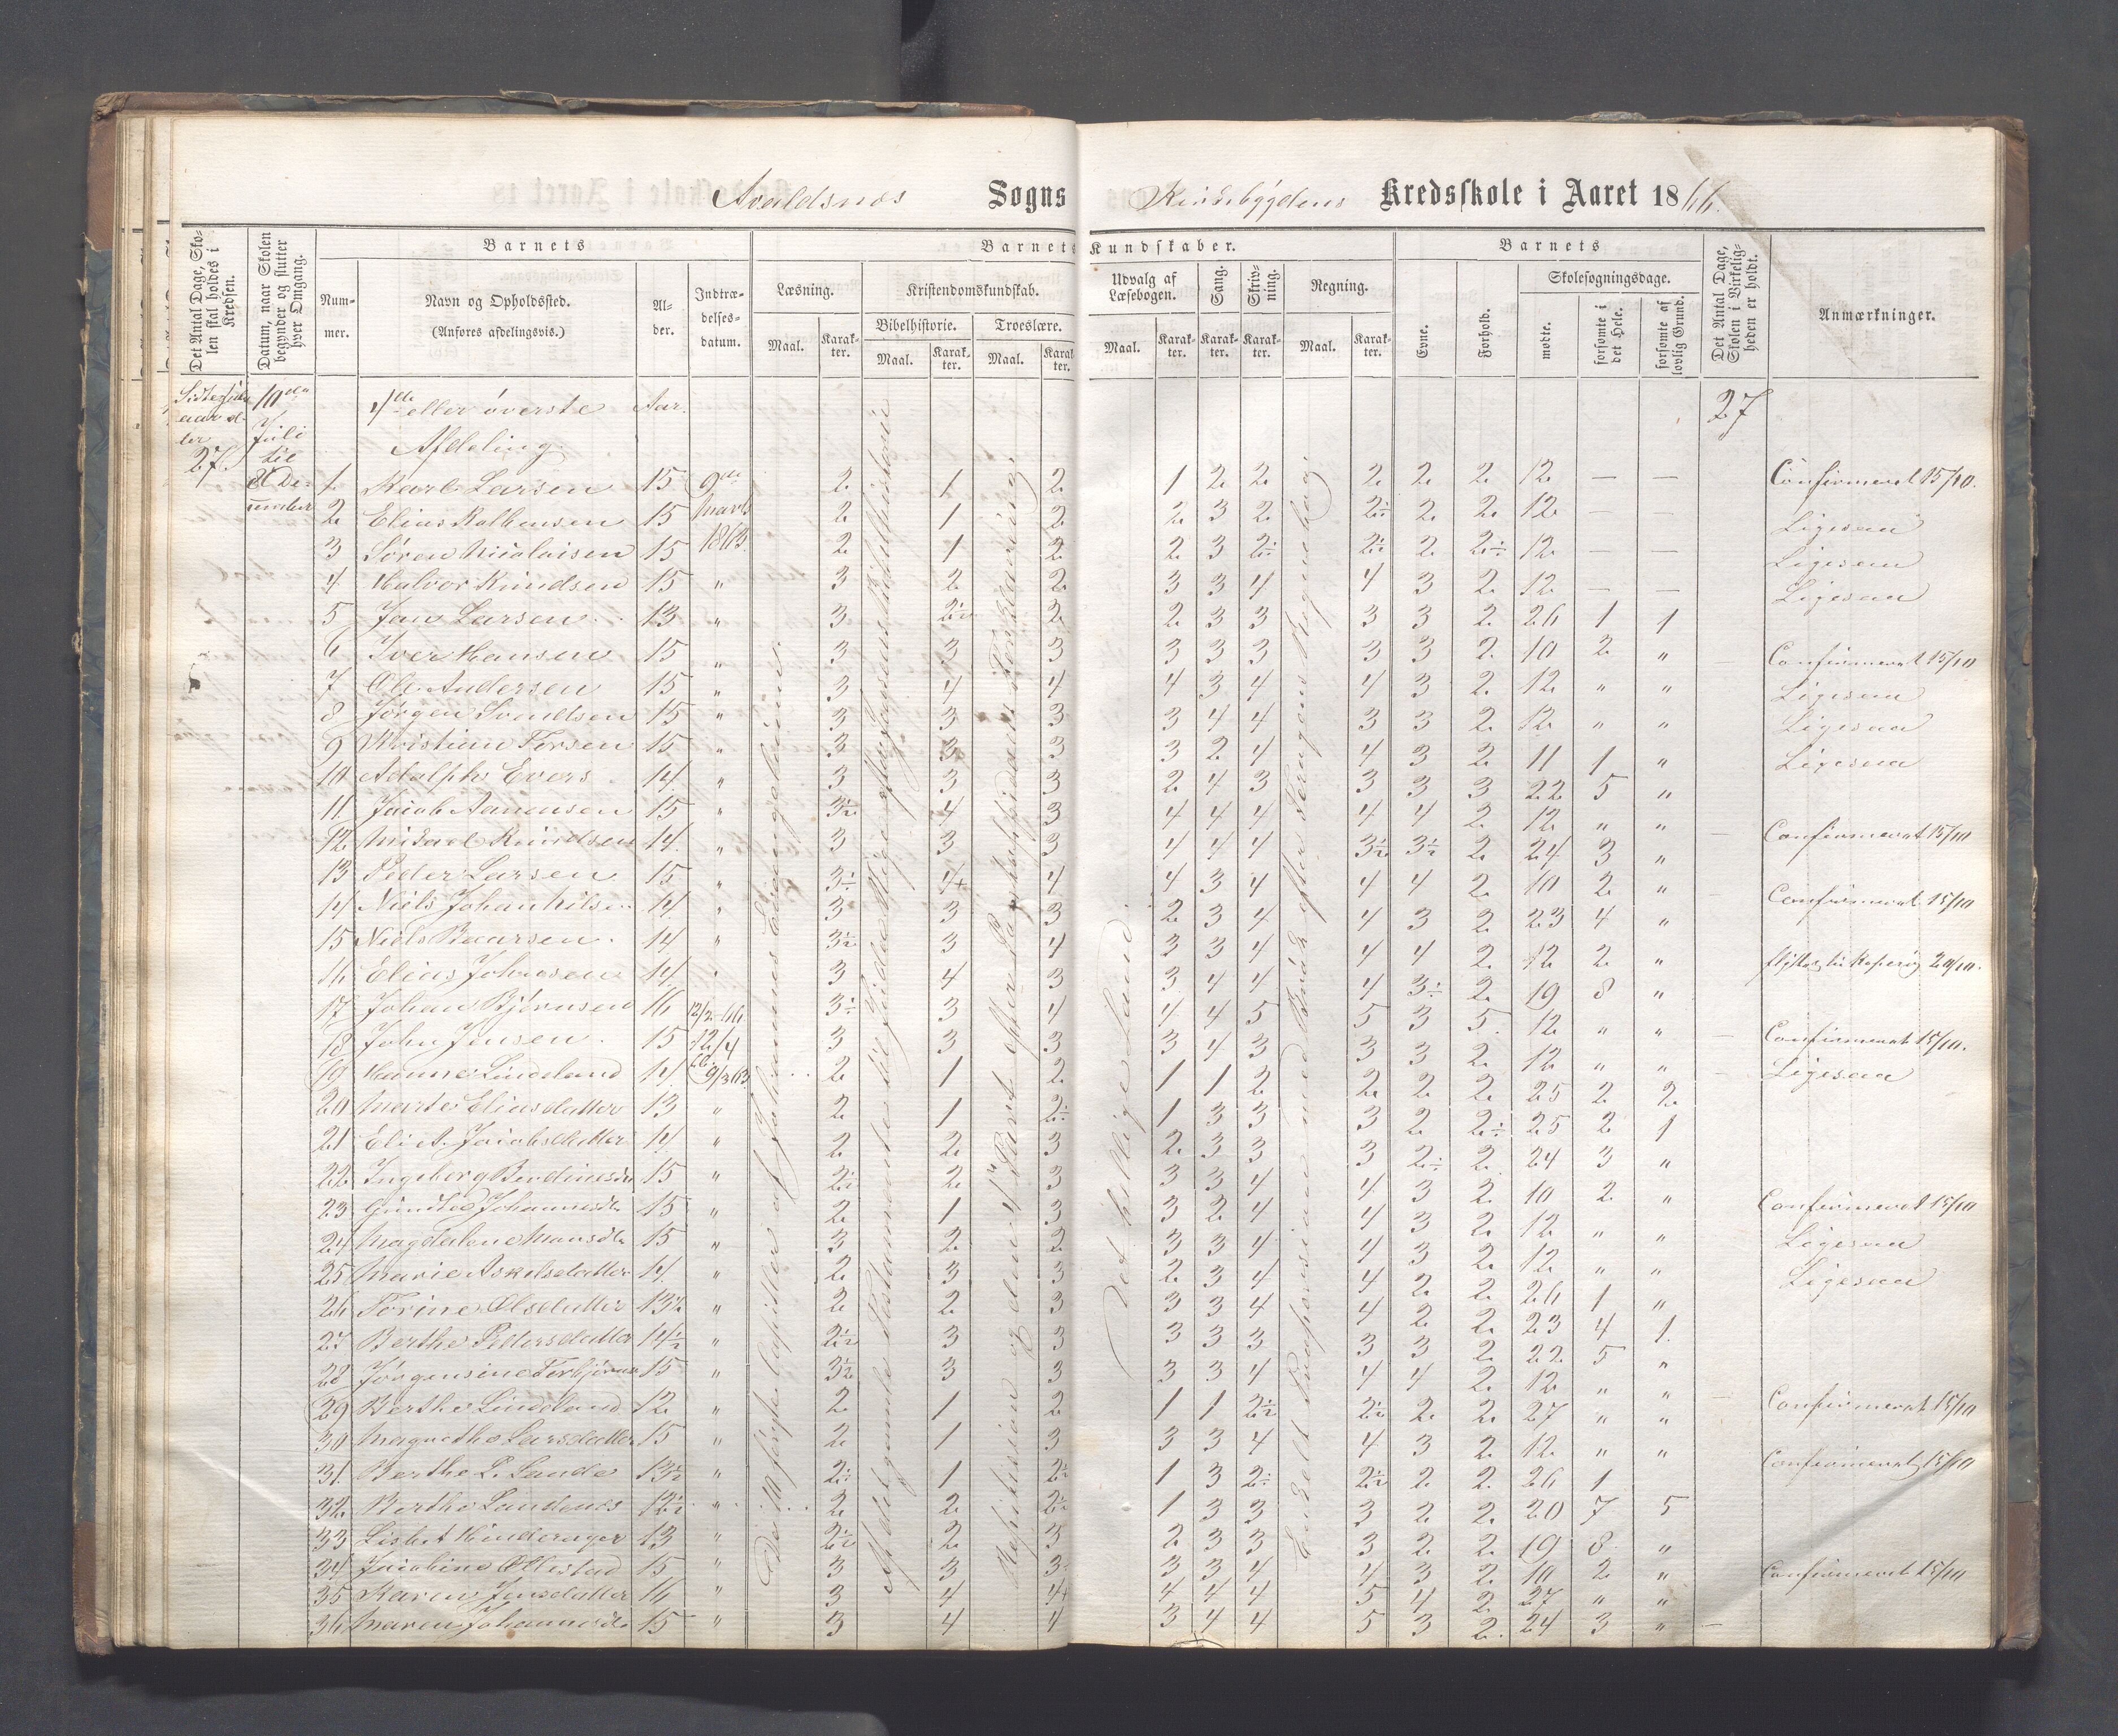 Avaldsnes Sogns Kredsskole i Aaret 1866.
Det Antal Dage, Skolen skal holdes i Kredsen.
Datum, naar Skolen begynder og slutter hver Omgang.
Barnets
Barnets Kundskaber.
Barnets
Det Antal Dage, Skolen i Virkeligheden er holdt.
Anmærkninger.
Nummer.
Navn og Opholdssted.
(Anføres afdelingsvis.)
Alder.
Indtrædelsesdatum.
Læsning.
Kristendomskundskab.
Udvalg af Læsebogen.
Sang.
Skrivning.
Regning.
Evne.
Forhold.
Skolesøgningsdage.
Bibelhistorie.
Troeslære.
mødte.
forsømte i det Hele.
forsømte af lovlig Grund.
Maal. Karakter. Maal. Karakter. Maal. Karakter. Maal. Karakter. Karakter. Karakter. Maal. Karakter.
27. 10de Juli til
1de eller øverste Aar. 27
Afdeling
1. Karl Larsen 15 9de Marts 1863 2 1 2 1 2 2 2 2 2 12 — — Confirmeret 15/10.
2 Elias 15 2 1 2 2 3 2 2½ 2 2 12 — — Ligesaa
3 Søren Nicolaisen 15 2 1 2 2 3 2÷ 2÷ 2 2÷ 12 — — Ligesaa
4 Halvor Knudsen 15 " 3 2 2 3 3 4 4 3 2 12 — — Ligesaa
5 Jan Larsen 13 " 3 2½ 2 2 3 3 3 3 2 26 1 1
6 Iver Hansen 15 " 3 3 3 3 3 3 3 3 2 10 2 " Confirmeret 15/10
7 Ole Andersen 15 " 3 4 4 4 3 4 4 3 2 12 " " Ligesaa
8 Jørgen Svendsen 15 " 3 3 3 3 4 4 3 3 2 12 " " Ligesaa
9 Kristian 15 " 3 3 3 3 2 4 4 3 2 11 1 " Ligesaa
10 Adolph Evers 14 " 3 3 3 2 4 3 3 3 3 22 5 "
11 Jacob Aanensen 15 " 3½ 4 3 4 4 4 4 4 2 12 " " Confirmeret 15/10
12 Mikael Knudsen 14 " 3 3 3 4 4 4 3½ 3½ 2 24 3 "
13 Peder Larsen 15 " 3÷ 4+ 4 4 3 4 4 4 2 10 2 " Confirmeret 15/10
14 Niels Johan Nilsen 14 " 3 3 3 2 3 4 4 3 2 23 4 "
15 Niels Baarsen 14 " 3½ 3 4 3 3 4 4 4 2 12 2 " 20/10.
16 Elias Johnsen 14 " 3 4 3 3 4 4 4 3÷ 2 19 8 "
17 Johan Bjørnsen 16 12/2 66 3÷ 3 4 4 4 5 5 3 5 12 " " Confirmeret 15/10.
18 John Jensen 15 12/4 66 3 3 3 3 4 3 3 3 2 12 " " Ligesaa
19 Hanne Lindeland 14 9/3 63 2 1 2 1 1 2 2 2 2 25 2 2
20 Marte Eliasdatter 13 " 2 1 2÷ 1 3 3 3 2 2÷ 25 2 1
21 Eli A. Jacobsdatter 14 " 2 2 3 2 3 3 3 2÷ 2 24 3 "
22 Ingeborg 15 " 2÷ 2 3 3 3 4 4 3 2 10 2 " Confirmeret 15/10
23 Gunhild Johannesdtr 15 " 2 1 3 3 2 4 4 3 2 12 " " Ligesaa
24 Magdalene Monsdtr 15 " 3 2 2 3 3 4 4 3 2 12 " " Ligesaa
25 Marie Askelsdatter 14 " 2 3 3 2 3 4 4 2 2 26 1 "
26 Torine Olsdatter 13½ " 2 2 3 3 3 4 4 2 2 23 4 1
27 Berthe Pedersdatter 14½ " 2½ 3 3 3 3 3 3 3 2 22 5 "
28 Jørgensine 15 " 3½ 3 3 3 3 4 4 4 2 12 " " Confirmeret 15/10
29 Berthe Lindeland 12 " 2 1 2 1 1 2½ 2½ 2 2 27 " "
30 Magnethe Larsdatter 15 " 2 1 3 3 3 4 4 3 2 12 " " Confirmeret 15/10
31 Berthe L. Sande 13½ " 2÷ 1 2½ 1 3 2÷ 2½ 2 2 26 1
32 Berthe 12½ " 2 2 2½ 1 3 3 3 2 2 20 7 5
33 Lisbet Hinderager 13 " 2½ 2 3 2 3 3 3 2 2 19 8 "
34 Jacobine Ollestad 15 " 3 3 3÷ 3 3 4 4 3 2 10 2 " Confirmeret 15/10
35 Karen Jensdatter 16 " 3 4 4+ 4 4 4 5 4 2 27 " "
36 Maren Johannesdtr 15 " 3 4 4 3 4 4 5 3 2 24 3 "
De 10 første Capitler af Johannes Evangelium.
Af det gamle Testamente til
Repitission og den 1ste Part efter Pontoppidans Forklaring.
Det hellige Land.
Enkelt Proportion med Brøk efter Sørensens Regnebog.